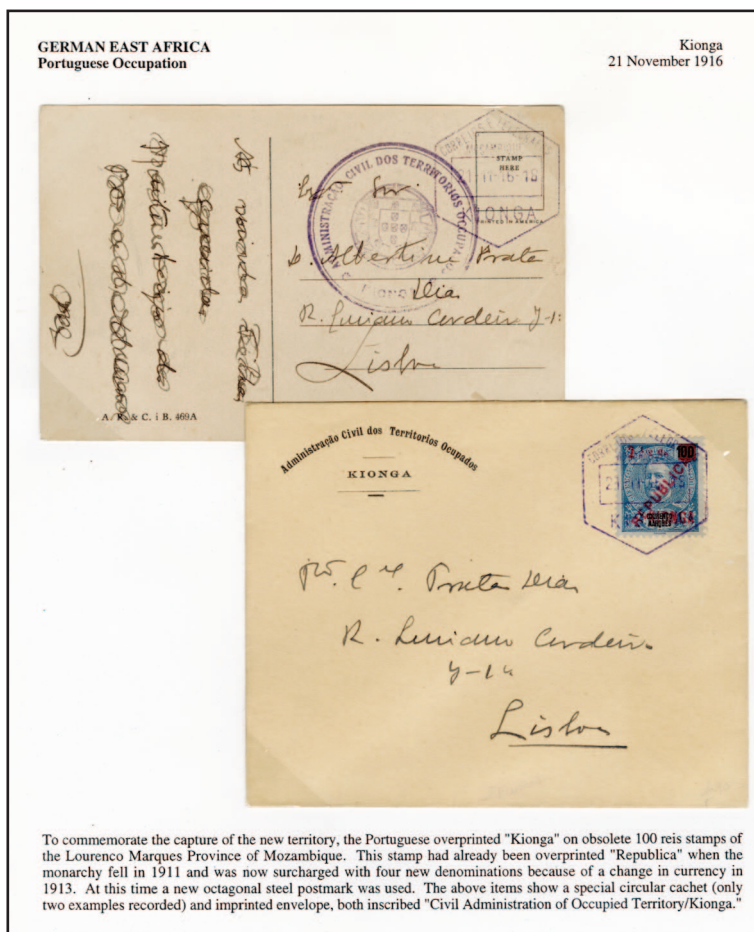 GERMAN EAST AFRICA
Portuguese Occupation
Kionga
21 November 1916
STAMP
HERE
PRINTED IN AMERICA
KIONGA
ADMINISTRAÇÃO CIVIL DOS TERRITORIOS OCCUPADOS
D. Albertina Prata
Dias
R. Luciano Cordeiro
Lisboa
A. R. & C. i B. 469A
Administração Civil dos Territorios Ocupados
KIONGA
100
REPUBLICA
Prata Dias
R. Luciano Cordeiro
Lisboa
To commemorate the capture of the new territory, the Portuguese overprinted "Kionga" on obsolete 100 reis stamps of
the Lourenco Marques Province of Mozambique. This stamp had already been overprinted "Republica" when the
monarchy fell in 1911 and was now surcharged with four new denominations because of a change in currency in
1913. At this time a new octagonal steel postmark was used. The above items show a special circular cachet (only
two examples recorded) and imprinted envelope, both inscribed "Civil Administration of Occupied Territory/Kionga."